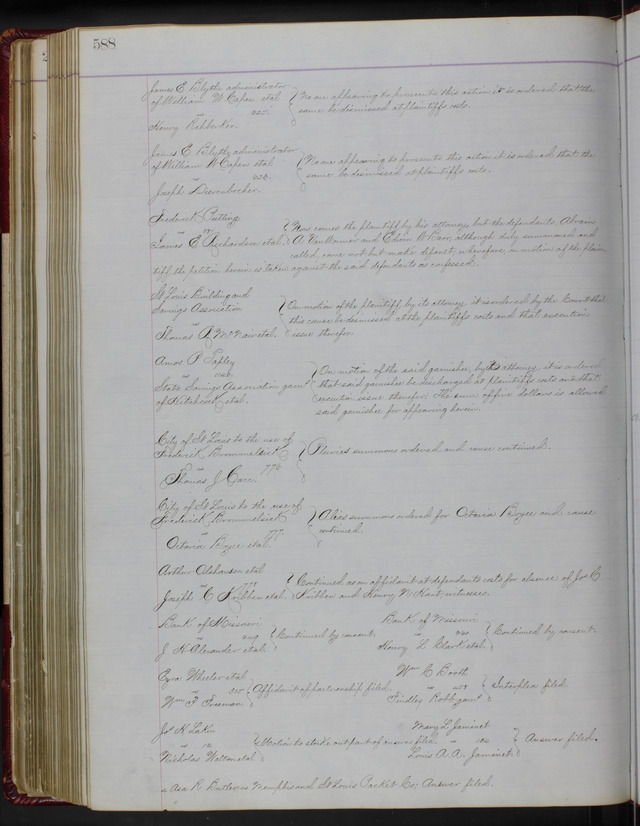 588
James E Blythe administrator
of William W Capen etal } No one appearing to prosecute this action it is ordered that the
vs same be dismissed at plaintiffs costs.
Henry
James E Blythe administrator
of William W Capen etal } No one appearing to prosecute this action it is ordered that the
vs same be dismissed at plaintiffs costs.
Joseph
Frederick
vs } Now comes the plaintiff by his attorney, but the defendants Abram
James E Richardson etal. A. and Edwin although duly summoned and
called, come not but make default; wherefore, on motion of the plain-
tiff, the petition herein is taken against the said defendants as confessed.
St Louis Building and
Savings Association } On motion of the plaintiff, by its attorney, it is ordered by the Court that
vs this cause be dismissed at the plaintiffs costs and that execution
Thomas McNair etal. issue therefor.
Amos P Tapley
vs } On motion of the said garnishee, by its attorney, it is ordered
State Savings Association garn that said garnishee be discharged at plaintiffs costs and that
of Hitchcock etal. execution issue therefor. The sum of five dollars is allowed
said garnishee for appearing herein.
City of St Louis to the use of
Frederick Brommelsick } Pluries summons ordered and cause continued.
vs 776
Thomas J Carr.
City of St Louis to the use of
Frederick Brommelsick } Alias summons ordered for Octavia Boyce and cause
vs 777 continued.
Octavia Boyce etal.
Arthur Olshausen etal
vs } Continued as on affidavit at defendants costs for absence of Jos C
Joseph C Kribben etal. Kribben and Henry W Hart, witnesses.
Bank of Missouri
vs } Continued by consent.
J H Alexander etal.
Bank of Missouri
vs } Continued by consent.
Henry L Clark etal.
Ezra Wheeler etal
vs } Affidavit of partnership filed.
Wm P Freeman
Wm C Barth
vs } Interplea filed.
Findley Robb garn
Jos H Lakin
vs } Motion to strike out part of answer filed.
Nicholas Walton etal
Mary L Jaminet
vs } Answer filed.
Louis A. A. Jaminet
Asa R Butler vs Memphis and St Louis Packet Co; Answer filed.